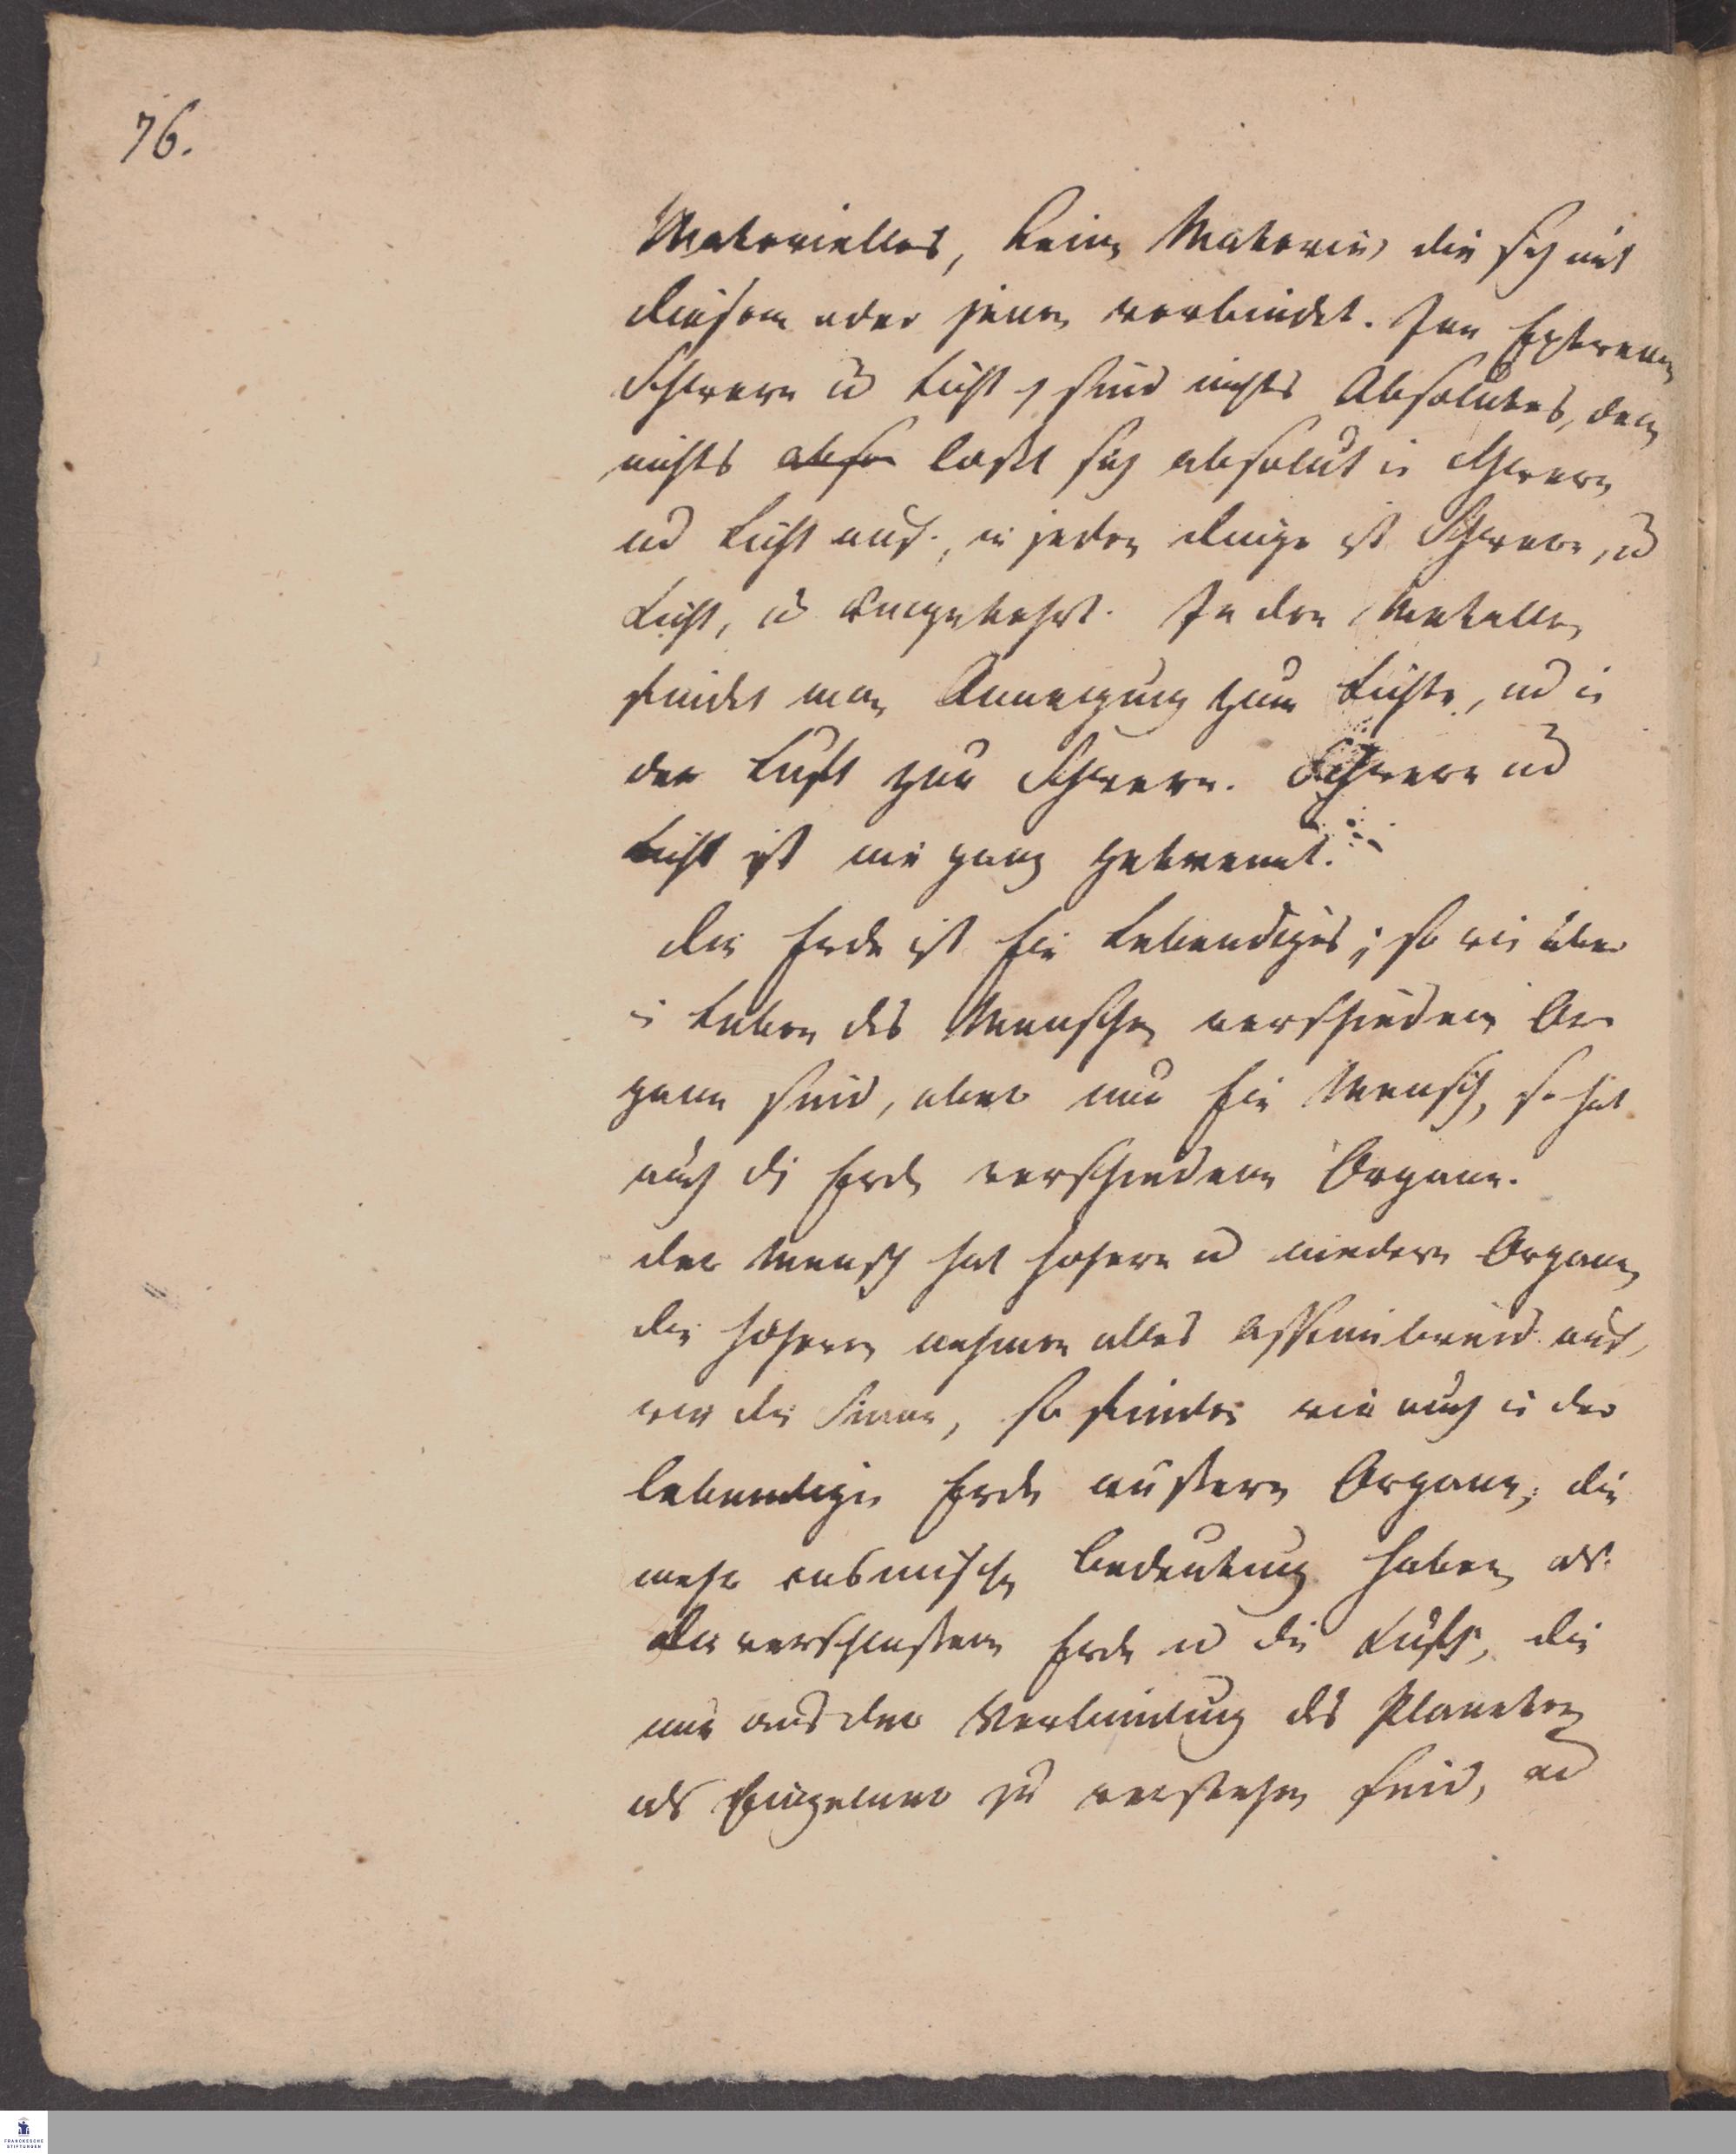 76.
Materielles, keine Materie, die sich mit
diesem oder jenem verbindet. Jene Extreme
Schwere u Licht, sind nichts Absolutes, denn
nichts abso löst sich absolut in Schwere
und Licht auf., in jedem Dinge ist Schwere, u
Licht, u umgekehrt. In den Metallen
findet man Anneigung zum Lichte, und in
der Luft zur Schwere. Schwere und
Licht ist nie ganz getrennt.
Die Erde ist Ein Lebendiges; so wie aber
im Leben des Menschen verschiedene Or
gane sind, aber nur Ein Mensch, so hat
auch die Erde verschiedene Organe.
Der Mensch hat höhere u niedere Organe,
die höheren nehmen alles assimilirend auf,
wie die Sinne, so finden wir auch in der
lebendigen Erde äußere Organe, die
mehr cosmische Bedeutung haben, als
die verschlossene Erde u die Luft, die
nur aus der Verbindung des Planeten
als Einzelner zu verstehen sind, und
FRANCKESCHE
STIFTUNGEN